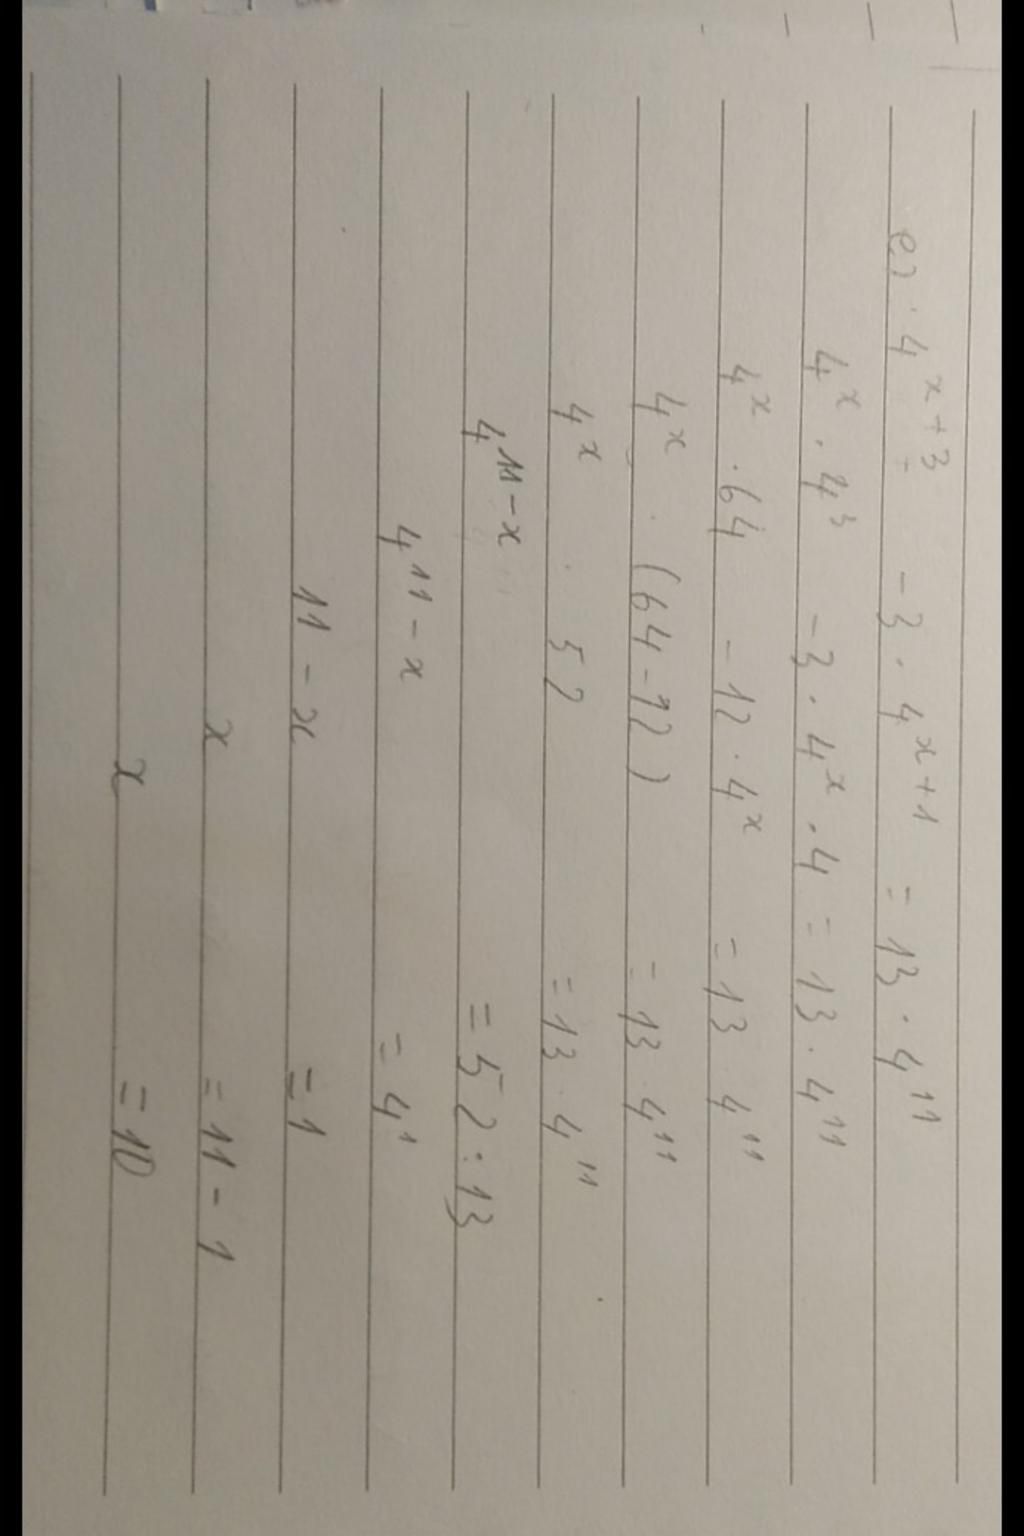 e) · 4^{x+3} - 3 · 4^{x+1} = 13 · 4^{11}
4^x · 4^3 - 3 · 4^x · 4 = 13 · 4^{11}
4^x · 64 - 12 · 4^x = 13 · 4^{11}
4^x · (64-12) = 13 · 4^{11}
4^x · 52 = 13 · 4^{11}
4^{11-x} = 52 : 13
4^{11-x} = 4^1
11 - x = 1
x = 11 - 1
x = 10